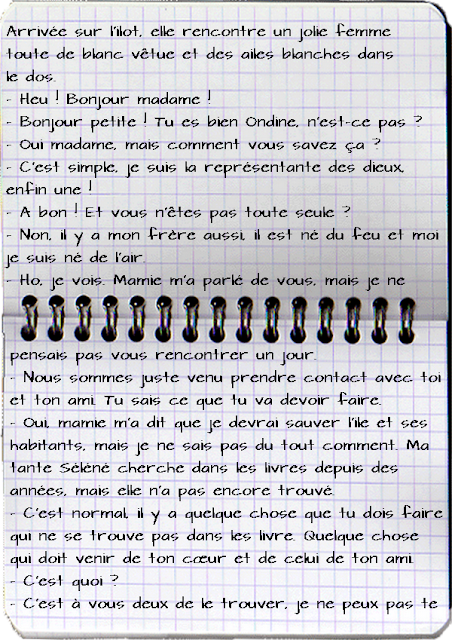 Arrivée sur l'îlot, elle rencontre un jolie femme
toute de blanc vêtue et des ailes blanches dans
le dos.
- Heu ! Bonjour madame !
- Bonjour petite ! Tu es bien Ondine, n'est-ce pas ?
- Oui madame, mais comment vous savez ça ?
- C'est simple, je suis la représentante des dieux,
enfin une !
- A bon ! Et vous n'êtes pas toute seule ?
- Non, il y a mon frère aussi, il est né du feu et moi
je suis né de l'air.
- Ho, je vois. Mamie m'a parlé de vous, mais je ne
pensais pas vous rencontrer un jour.
- Nous sommes juste venu prendre contact avec toi
et ton ami. Tu sais ce que tu va devoir faire.
- Oui, mamie m'a dit que je devrai sauver l'île et ses
habitants, mais je ne sais pas du tout comment. Ma
tante Séléné cherche dans les livres depuis des
années, mais elle n'a pas encore trouvé.
- C'est normal, il y a quelque chose que tu dois faire
qui ne se trouve pas dans les livre. Quelque chose
qui doit venir de ton cœur et de celui de ton ami.
- C'est quoi ?
- C'est à vous deux de le trouver, je ne peux pas te